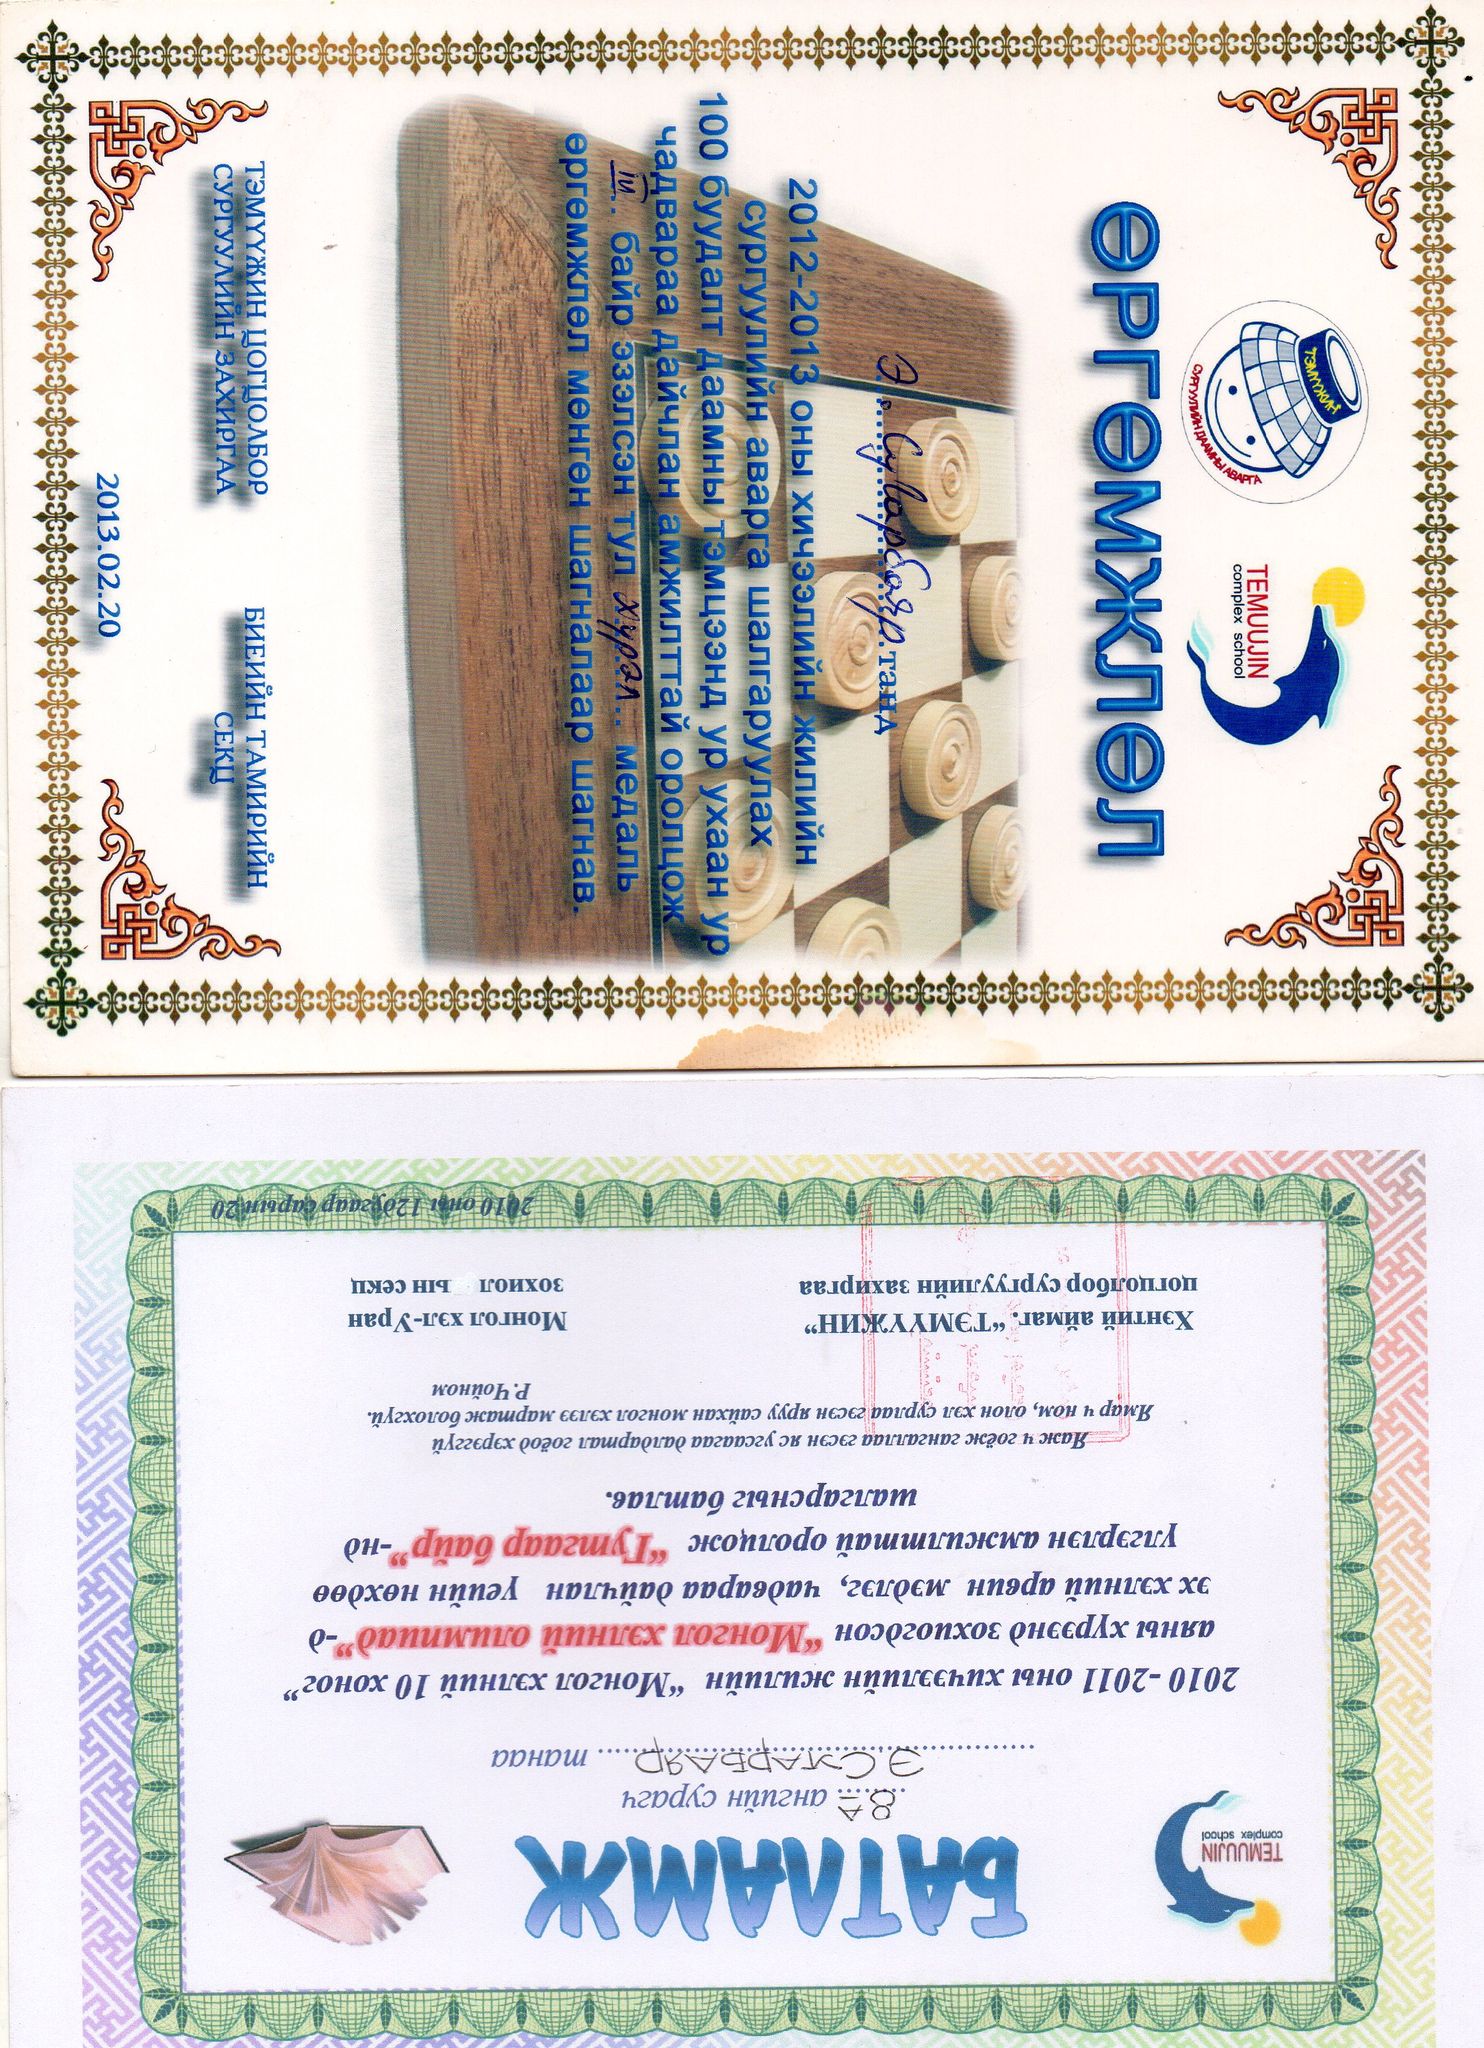 ТЭМҮҮЖИН
СУРГУУЛИЙН ДААМНЫ АВАРГА
TEMUUJIN
complex school
ӨРГӨМЖЛӨЛ
Э. Сугарбаяр танд
2012-2013 оны хичээлийн жилийн
сургуулийн аварга шалгаруулах
100 буудалт даамны тэмцээнд ур ухаан ур
чадвараа дайчлан амжилттай оролцож
III.. байр эзэлсэн тул хүрэл.. медаль
өргөмжлөл мөнгөн шагналаар шагнав.
ТЭМҮҮЖИН ЦОГЦОЛБОР
СУРГУУЛИЙН ЗАХИРГАА
БИЕИЙН ТАМИРИЙН
СЕКЦ
2013.02.20
TEMUUJIN
complex school
БАТЛАМЖ
..8А.. ангийн сурагч
Э.СУГАРБАЯР.... танаа
2010 -2011 оны хичээлийн жилийн “Монгол хэлний 10 хоног”
аяны хүрээнд зохиогдсон “Монгол хэлний олимпиад”-д
эх хэлний арвин мэдлэг, чадвараа дайчлан үеийн нөхдөө
үлгэрлэн амжилттай оролцож “Тэргүүн байр”-нд
шалгарсныг батлав.
Яаж ч гоёж гангаллаа гэсэн яс угсаагаа далдартал гоёод хэрэггүй
Ямар ч ном, олон хэл сурлаа гэсэн яруу сайхан монгол хэлээ мартаж болохгүй.
Р.Чойном
Хэнтий аймаг. “ТЭМҮҮЖИН”
цогцолбор сургуулийн захиргаа
Монгол хэл-Уран
зохиол ын секц
2010 оны 12дугаар сарын 20